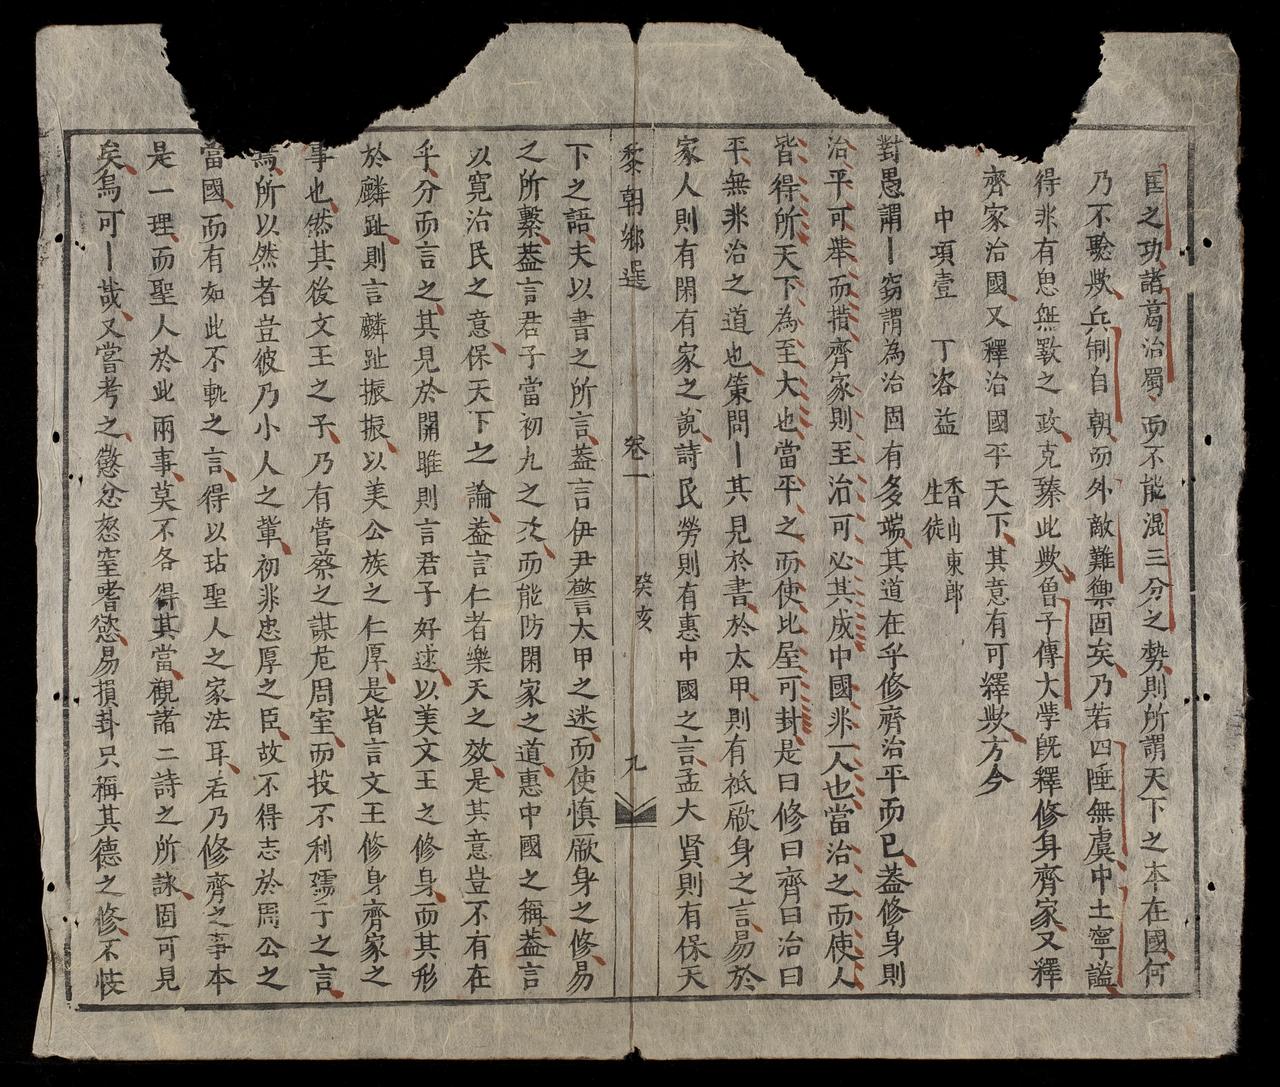 匡之功諸葛治蜀而不能混三分之勢則所謂天下之本在國何
乃不驗歟兵制自朝而外敵難禦固矣乃若四陲無虞中土寧謐
得非有思無斁之政克臻此歟曾子傳大學既釋修身齊家又釋
齊家治國又釋治國平天下其意有可釋歟方今
中項壹 丁咨益 香山東郎
生徒
對愚謂丨窃謂為治固有多端其道在乎修齊治平而已蓋修身則
治平可舉而措齊家則至治可必其成中國非一人也當治之而使人
皆得所天下為至大也當平之而使比屋可封是曰修曰齊曰治曰
平無非治之道也策問丨其見於書於太甲則有祗厥身之言易於
家人則有閑有家之說詩民勞則有惠中國之言孟大賢則有保天
黎朝鄉選 卷一 癸亥 九
下之語夫以書之所言蓋言伊尹警太甲之迷而使慎厥身之修易
之所繫蓋言君子當初九之爻而能防閑家之道惠中國之稱蓋言
以寬治民之意保天下之論蓋言仁者樂天之效是其意豈不有在
乎分而言之其見於關雎則言君子好逑以美文王之修身而其形
於麟趾則言麟趾振振以美公族之仁厚是皆言文王修身齊家之
事也然其後文王之子乃有管蔡之謀危周室而投不利孺子之言
焉所以然者豈彼乃小人之輩初非忠厚之臣故不得志於周公之
當國而有如此不軌之言得以玷聖人之家法耳若乃修齊之事本
是一理而聖人於此兩事莫不各得其當觀諸二詩之所詠固可見
矣烏可丨哉又嘗考之懲忿窒嗜慾易損卦只稱其德之修不忮